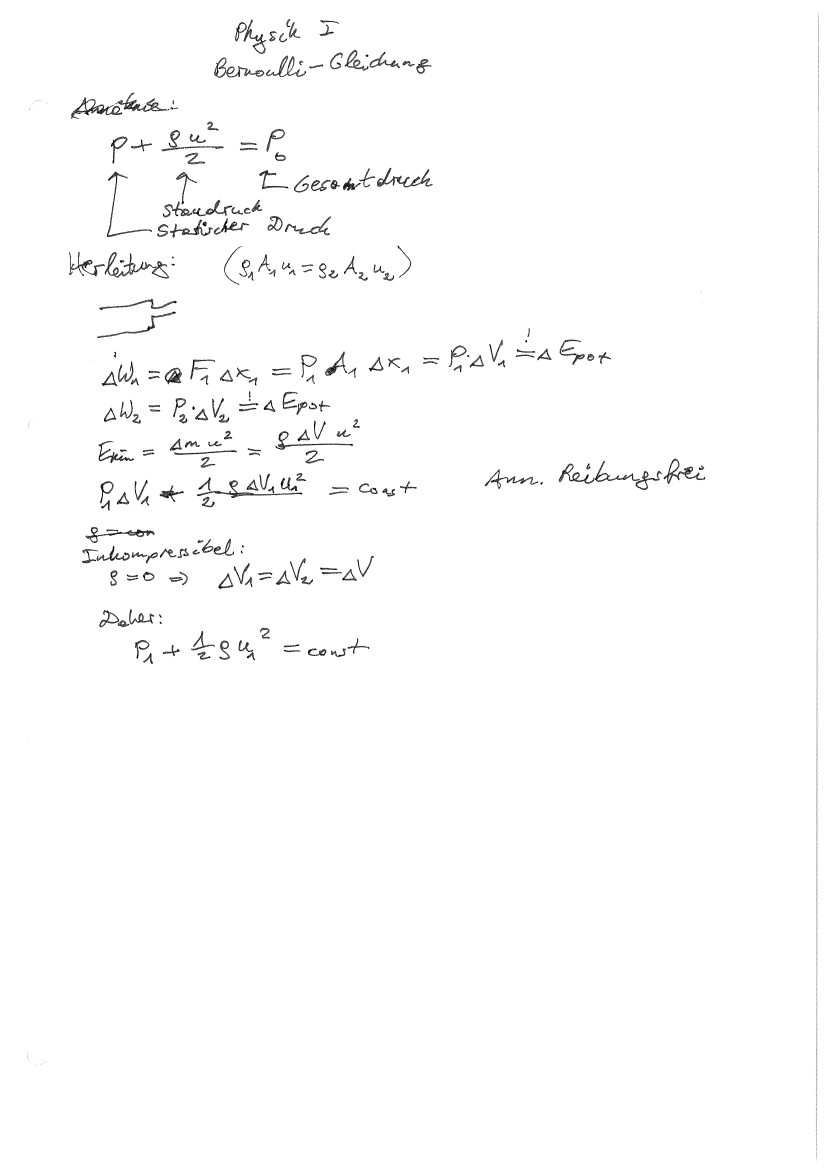 Physik I
Bernoulli-Gleichung
p + ϱu²/2 = P₀
Gesamtdruck
Staudruck
Statischer Druck
Herleitung: (ϱ₁A₁u₁ = ϱ₂A₂u₂)
ΔW₁ = F₁ Δx₁ = P₁ A₁ Δx₁ = P₁·ΔV₁ =! Δ Epot
ΔW₂ = P₂·ΔV₂ =! Δ Epot
Ekin = Δm u²/2 = ϱ ΔV u²/2
P₁ΔV₁ + 1/2 ϱ ΔV₁ u₁² = const Ann. Reibungsfrei
ϱ = con
Inkompressibel:
ϱ = 0 ⇒ ΔV₁ = ΔV₂ = ΔV
Daher:
P₁ + 1/2 ϱ u₁² = const